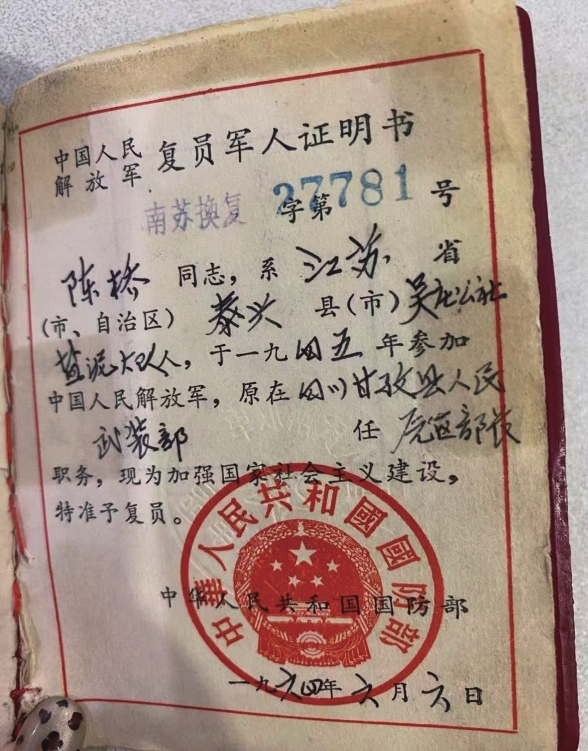 中国人民解放军 复员军人证明书
南苏换复 字第 27781 号
陈桥 同志，系 江苏 省
（市、自治区） 泰兴 县（市）吴庄公社
盐泥大队人，于一九四五年参加
中国人民解放军，原在四川甘孜县人民
武装部 任 虎区部长
职务，现为加强国家社会主义建设，
特准予复员。
中華人民共和國國防部
中华人民共和国国防部
一九六四年六月六日